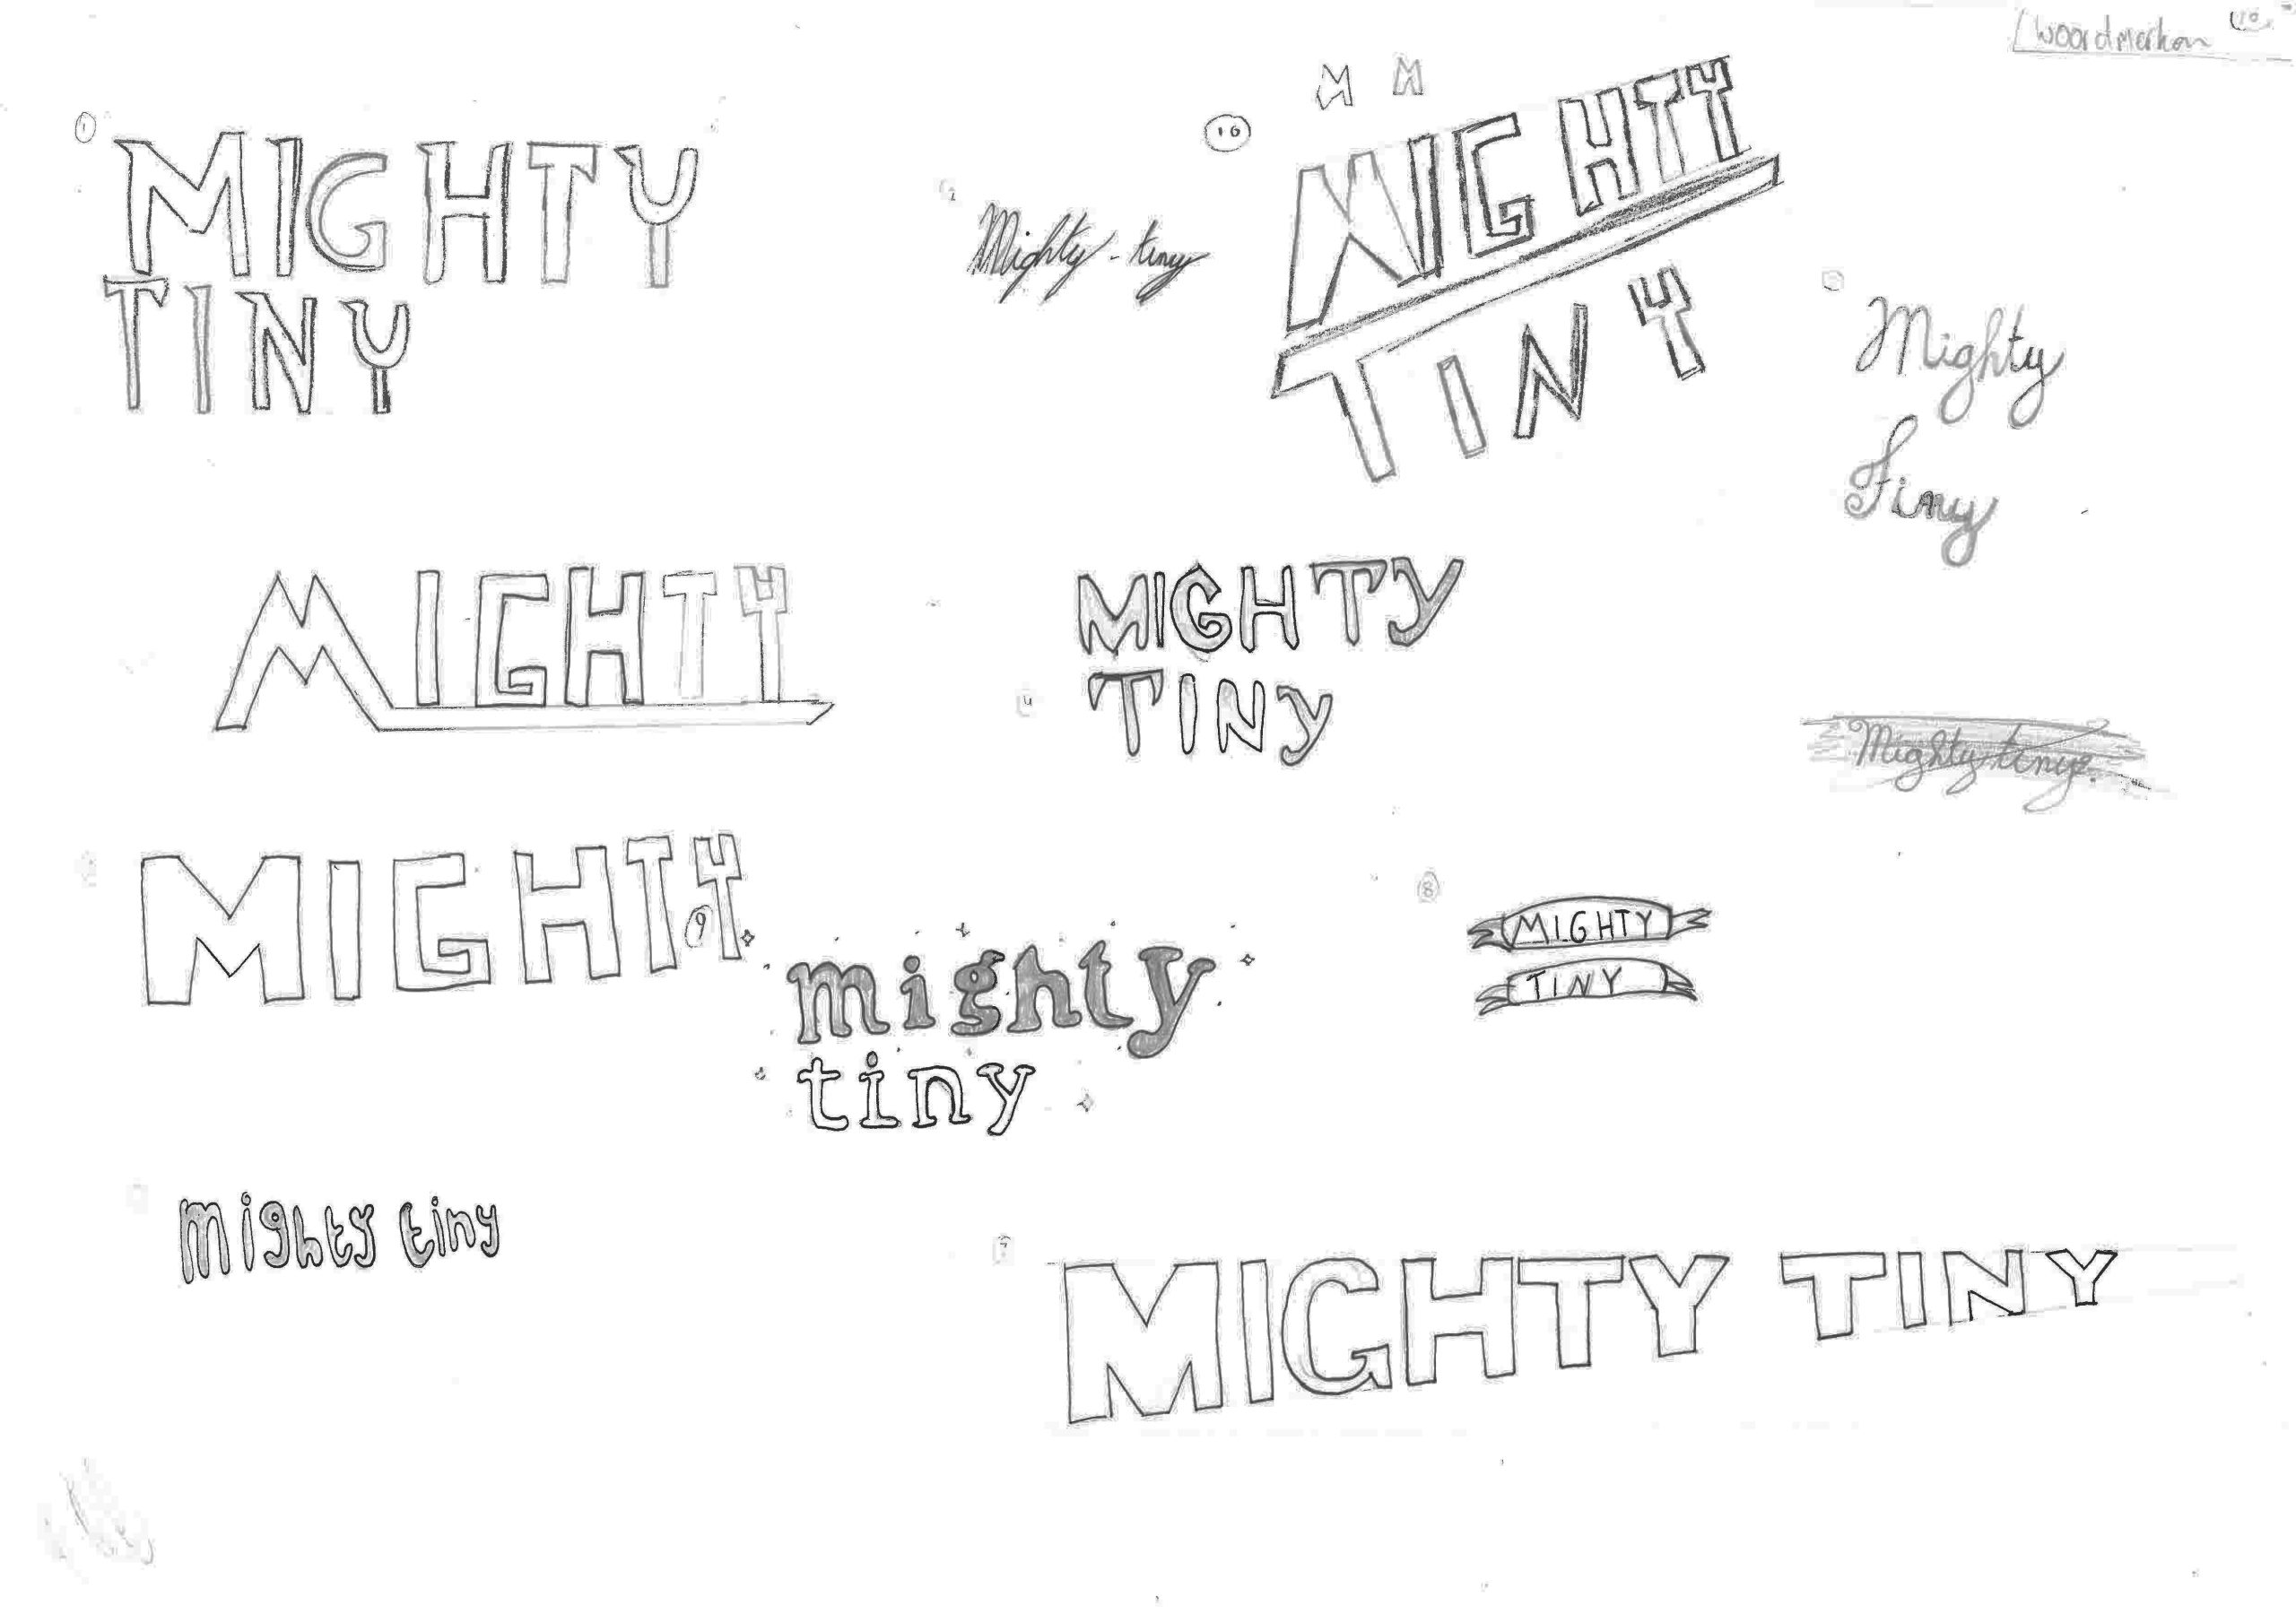 woordmerken 10
1
MIGHTY
TINY
2
Mighty-tiny
10
M M
MIGHTY
TINY
Mighty
Tiny
MIGHTY
4
MIGHTY
TINY
Mighty tiny
MIGHTY
9
mighty
tiny
8
MIGHTY
TINY
mighty tiny
7
MIGHTY TINY